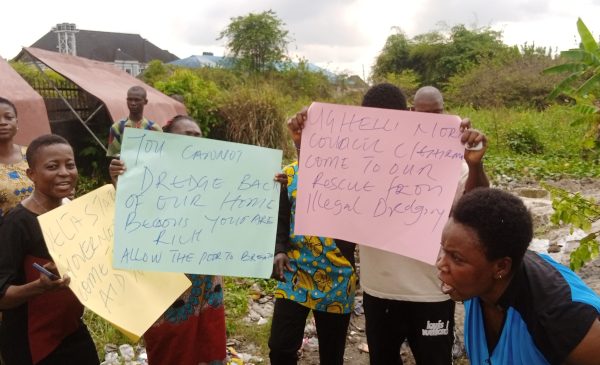 ELTA STA
GOVERNO
OME
AID
YOU CANNOT
DREDGE BACK
OF OUR HOME
BECOUS YOUR ARE
RICH
ALLOW THE POOR TO BREATH
UGHELLI NOR
COUNCIL CHAIRM
COME TO OUR
RESCUE FROM
Illegal Dredging